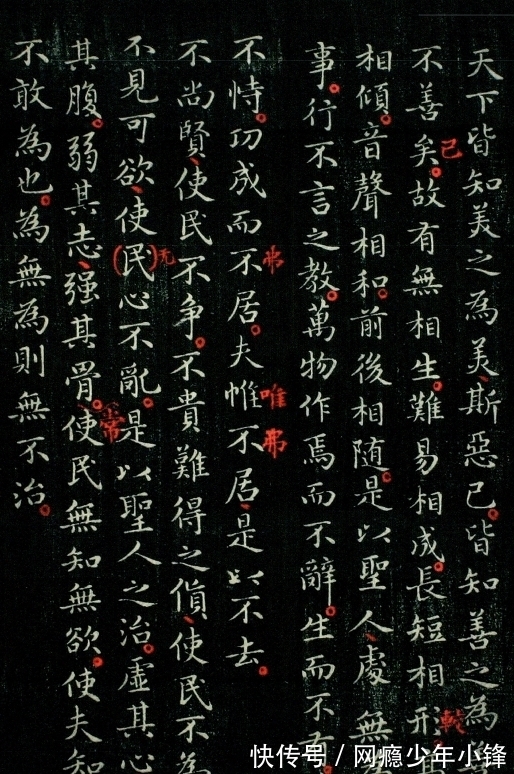 天下皆知美之為美、斯惡已。皆知善之為
不善矣。故有無相生。難易相成。長短相形。
已
相傾。音聲相和。前後相随。是以聖人、處無
事。行不言之教。萬物作焉而不辭。生而不有
不恃。功成而不居。夫惟不居、是以不去。
弗
唯弗
不尚賢、使民不争。不貴難得之貨、使民不為
不見可欲、使(民)心不亂。是以聖人之治。虛其心
无
其腹。弱其志、強其骨。使民無知無欲。使夫知
常
不敢為也。為無為則無不治。
快传号 / 网瘾少年小锋